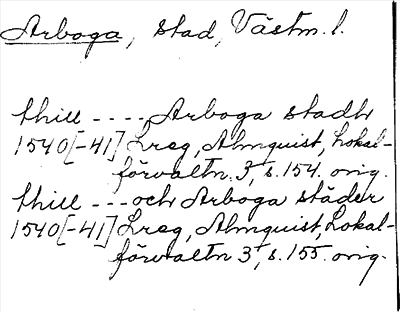 Arboga, stad, Västm. l.
thill ----, Arboga stadh
1540[-41] Lreg, Almquist, Lokal-
förvaltn. 3, s. 154. orig.
thill ---och Arboga städer
1540[-41] Lreg, Almquist, Lokal-
förvaltn 3, s. 155. orig.